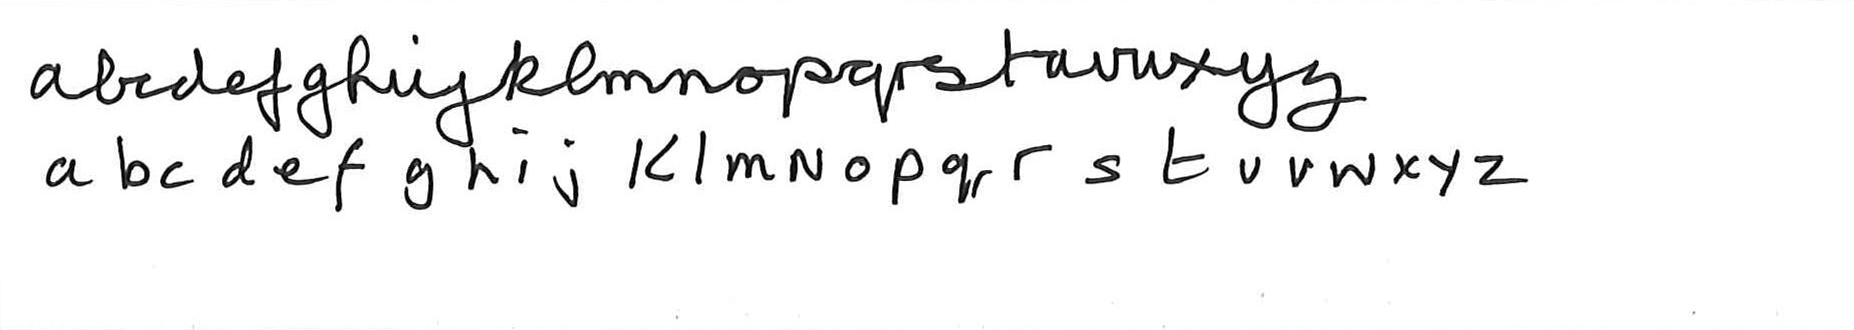 abcdefghijklmnopqrstuvwxyz
a b c d e f g h i j K l m N o p q r s t u v w x y z